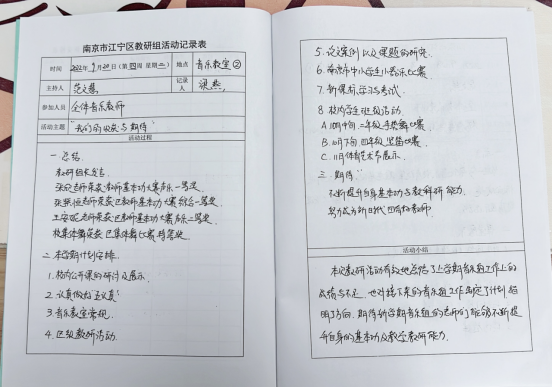 南京市江宁区教研组活动记录表
时间 2022年9月20日(第四周 星期二) 地点 音乐教室②
主持人 范文慧 记录人
参加人员 全体音乐教师
活动主题 "我们的收获与期待"
活动过程
一、总结
教研组长发言
老师荣获区教师基本功大赛声乐一等奖
老师荣获区教师基本功大赛综合一等奖
老师荣获区教师基本功大赛声乐二等奖
校集体舞荣获区集体舞比赛特等奖
二、本学期计划安排
1.校内公开课的研讨及展示
2.认真做好"五认真"
3.音乐教室常规
4.区级教研活动
5.论文案例以及课题的研究
6.南京市中小学生小器乐比赛
7.新课标学习与考试
8.校内学生班级活动
A.10月中旬 二年级手势舞比赛
B.10月下旬 四年级竖笛比赛
C.11月体育艺术节展示
三、期待
不断提升自身基本功与教科研能力
努力成为新时代四有好教师
活动小结
本次教研活动有效地总结了上学期音乐组工作上的
成绩与不足,也对接下来的音乐组工作制定了计划指
明了方向。期待新学期音乐组的老师们能够不断提
升自身的基本功及教学教研能力。